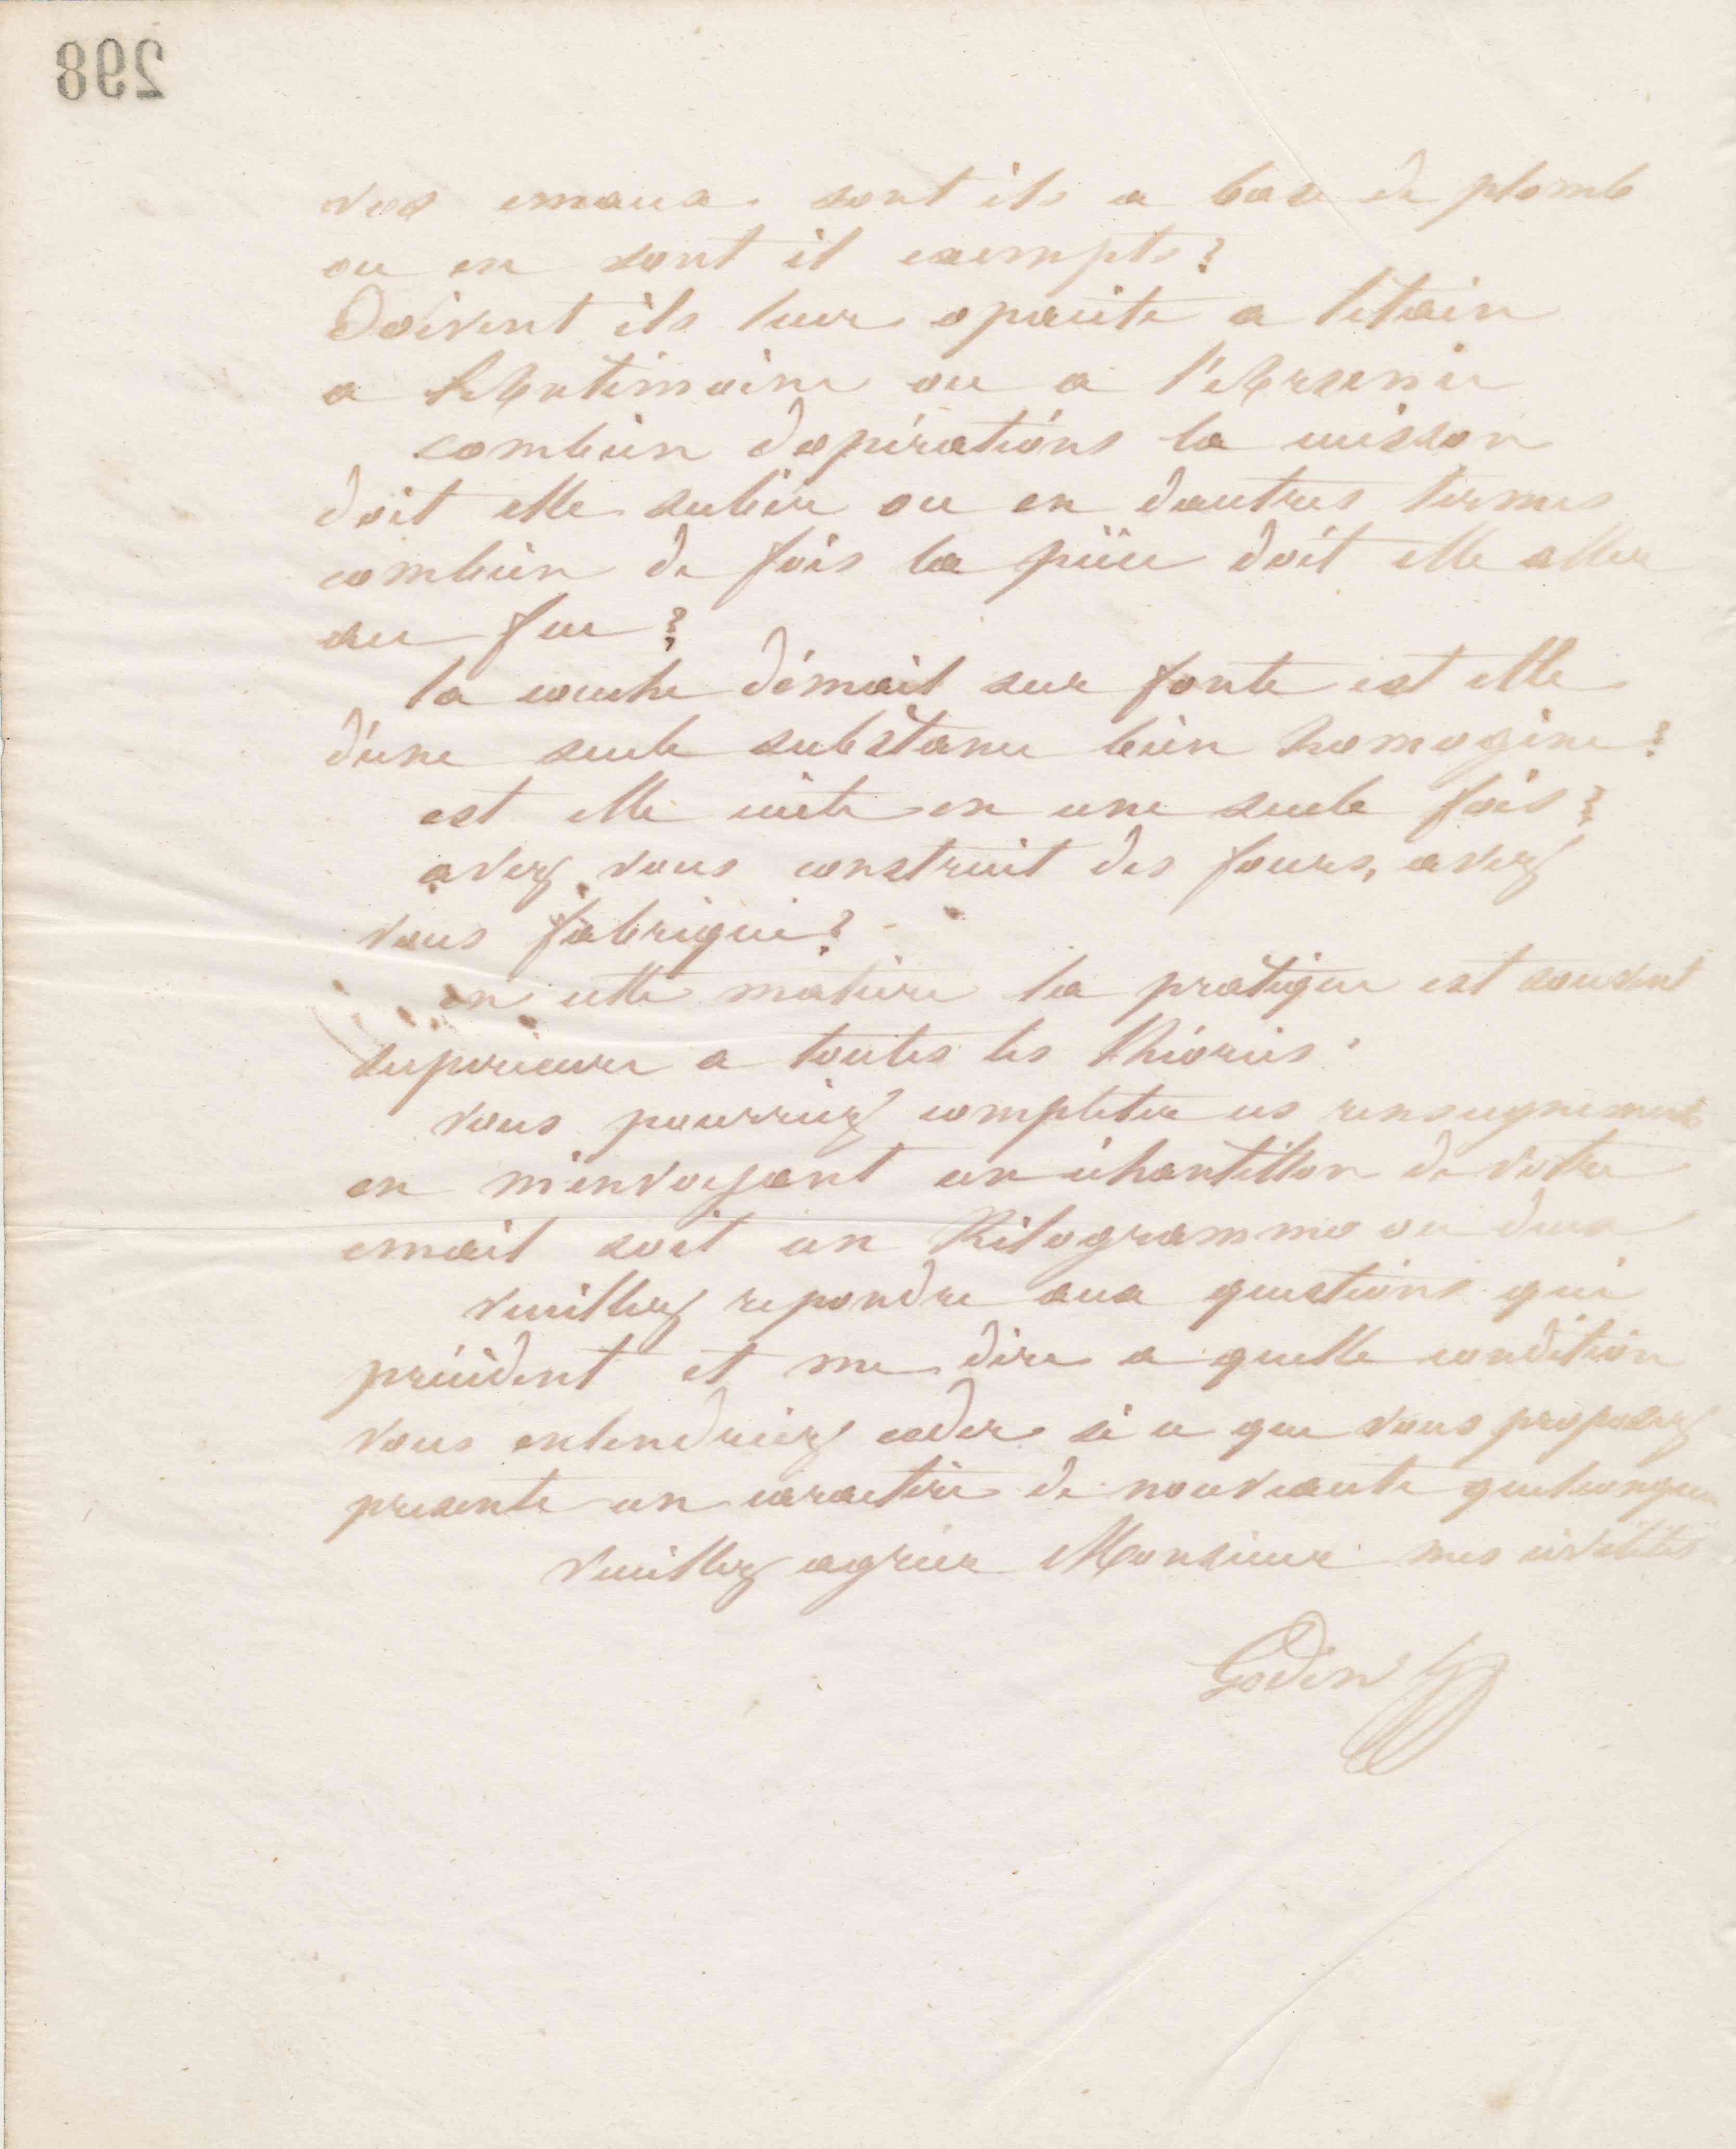 298
vos emaux sont ils a base de plomb
ou en sont il exempts?
Doivent ils leur opacite a letain
a l'Antimoine ou a l'Arsenic
combien dopérations la cuisson
doit elle subir ou en dautres termes
combien de fois la pièce doit elle aller
au feu?
la couche démail sur fonte est elle
d'une seule substance bien homogène?
est elle cuite en une seule fois?
avez vous construit des fours, avez
vous fabriqué?
en cette matière la pratique est souvent
superieure a toutes les théories.
vous pourriez completer ces renseignements
en m'envoyant un échantillon de votre
email soit un Kilogramme ou deux
veuillez repondre aux questions qui
précèdent et me dire a quelle condition
vous entendriez ceder si ce que vous proposez
presente un caractère de nouveauté quelconque
veuillez agréer Monsieur mes civilités
Godin